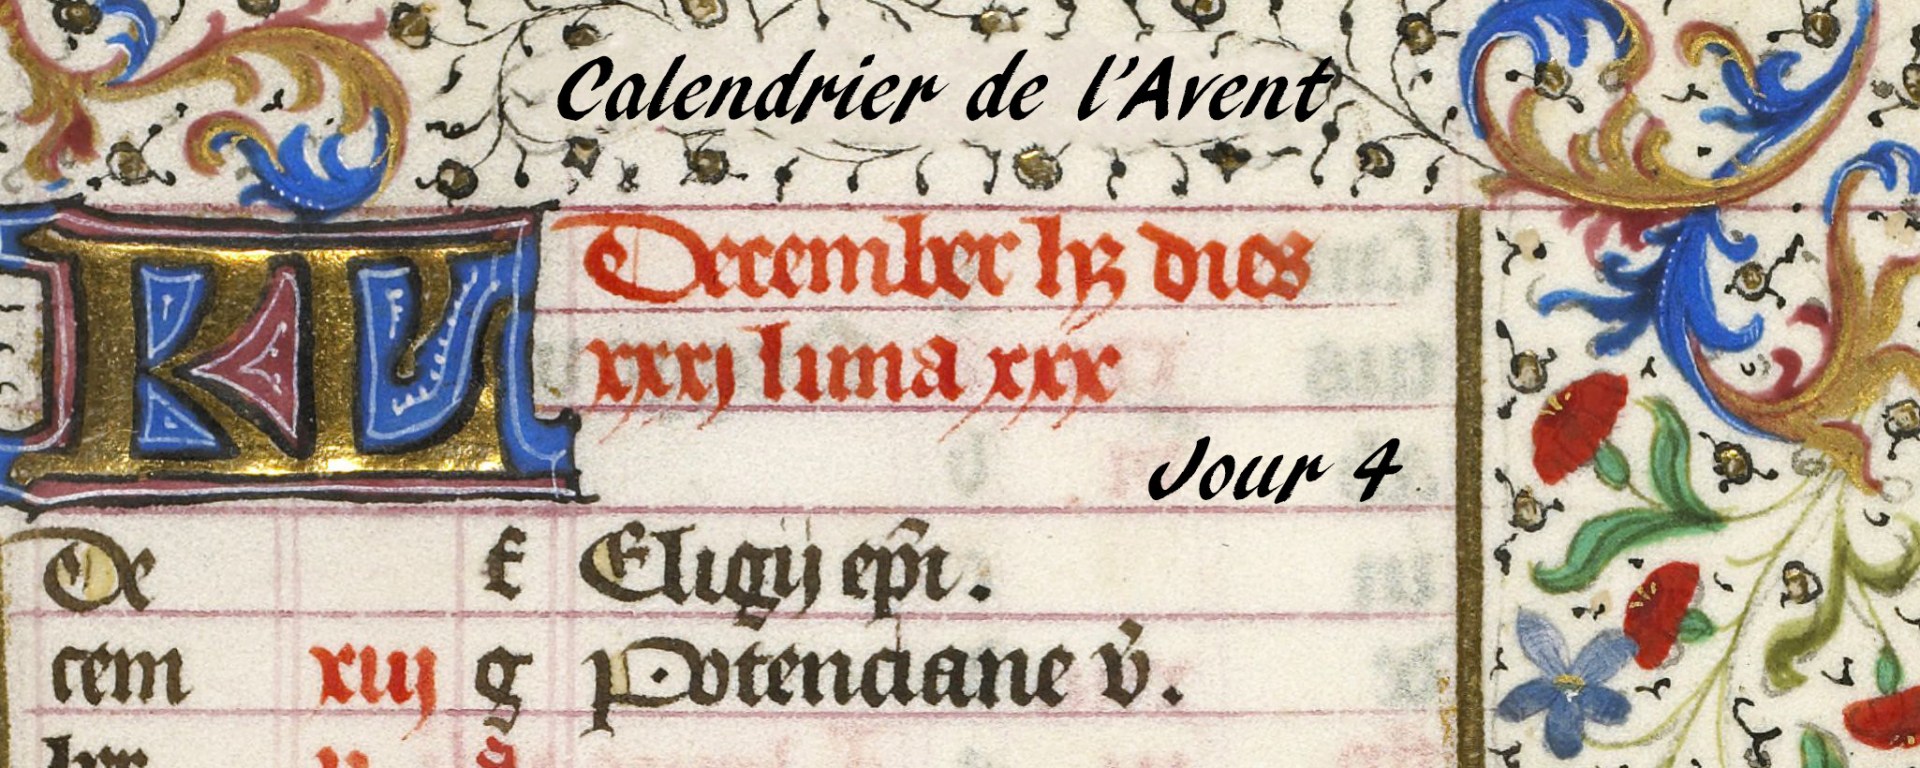 Calendrier de l'Avent
KL December hz dies
xxxi luna xxx
Jour 4
De f Eligij epi.
cem xiij g Potenciane v.